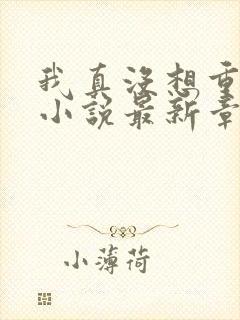 我真没想重
小说最新章
小薄荷